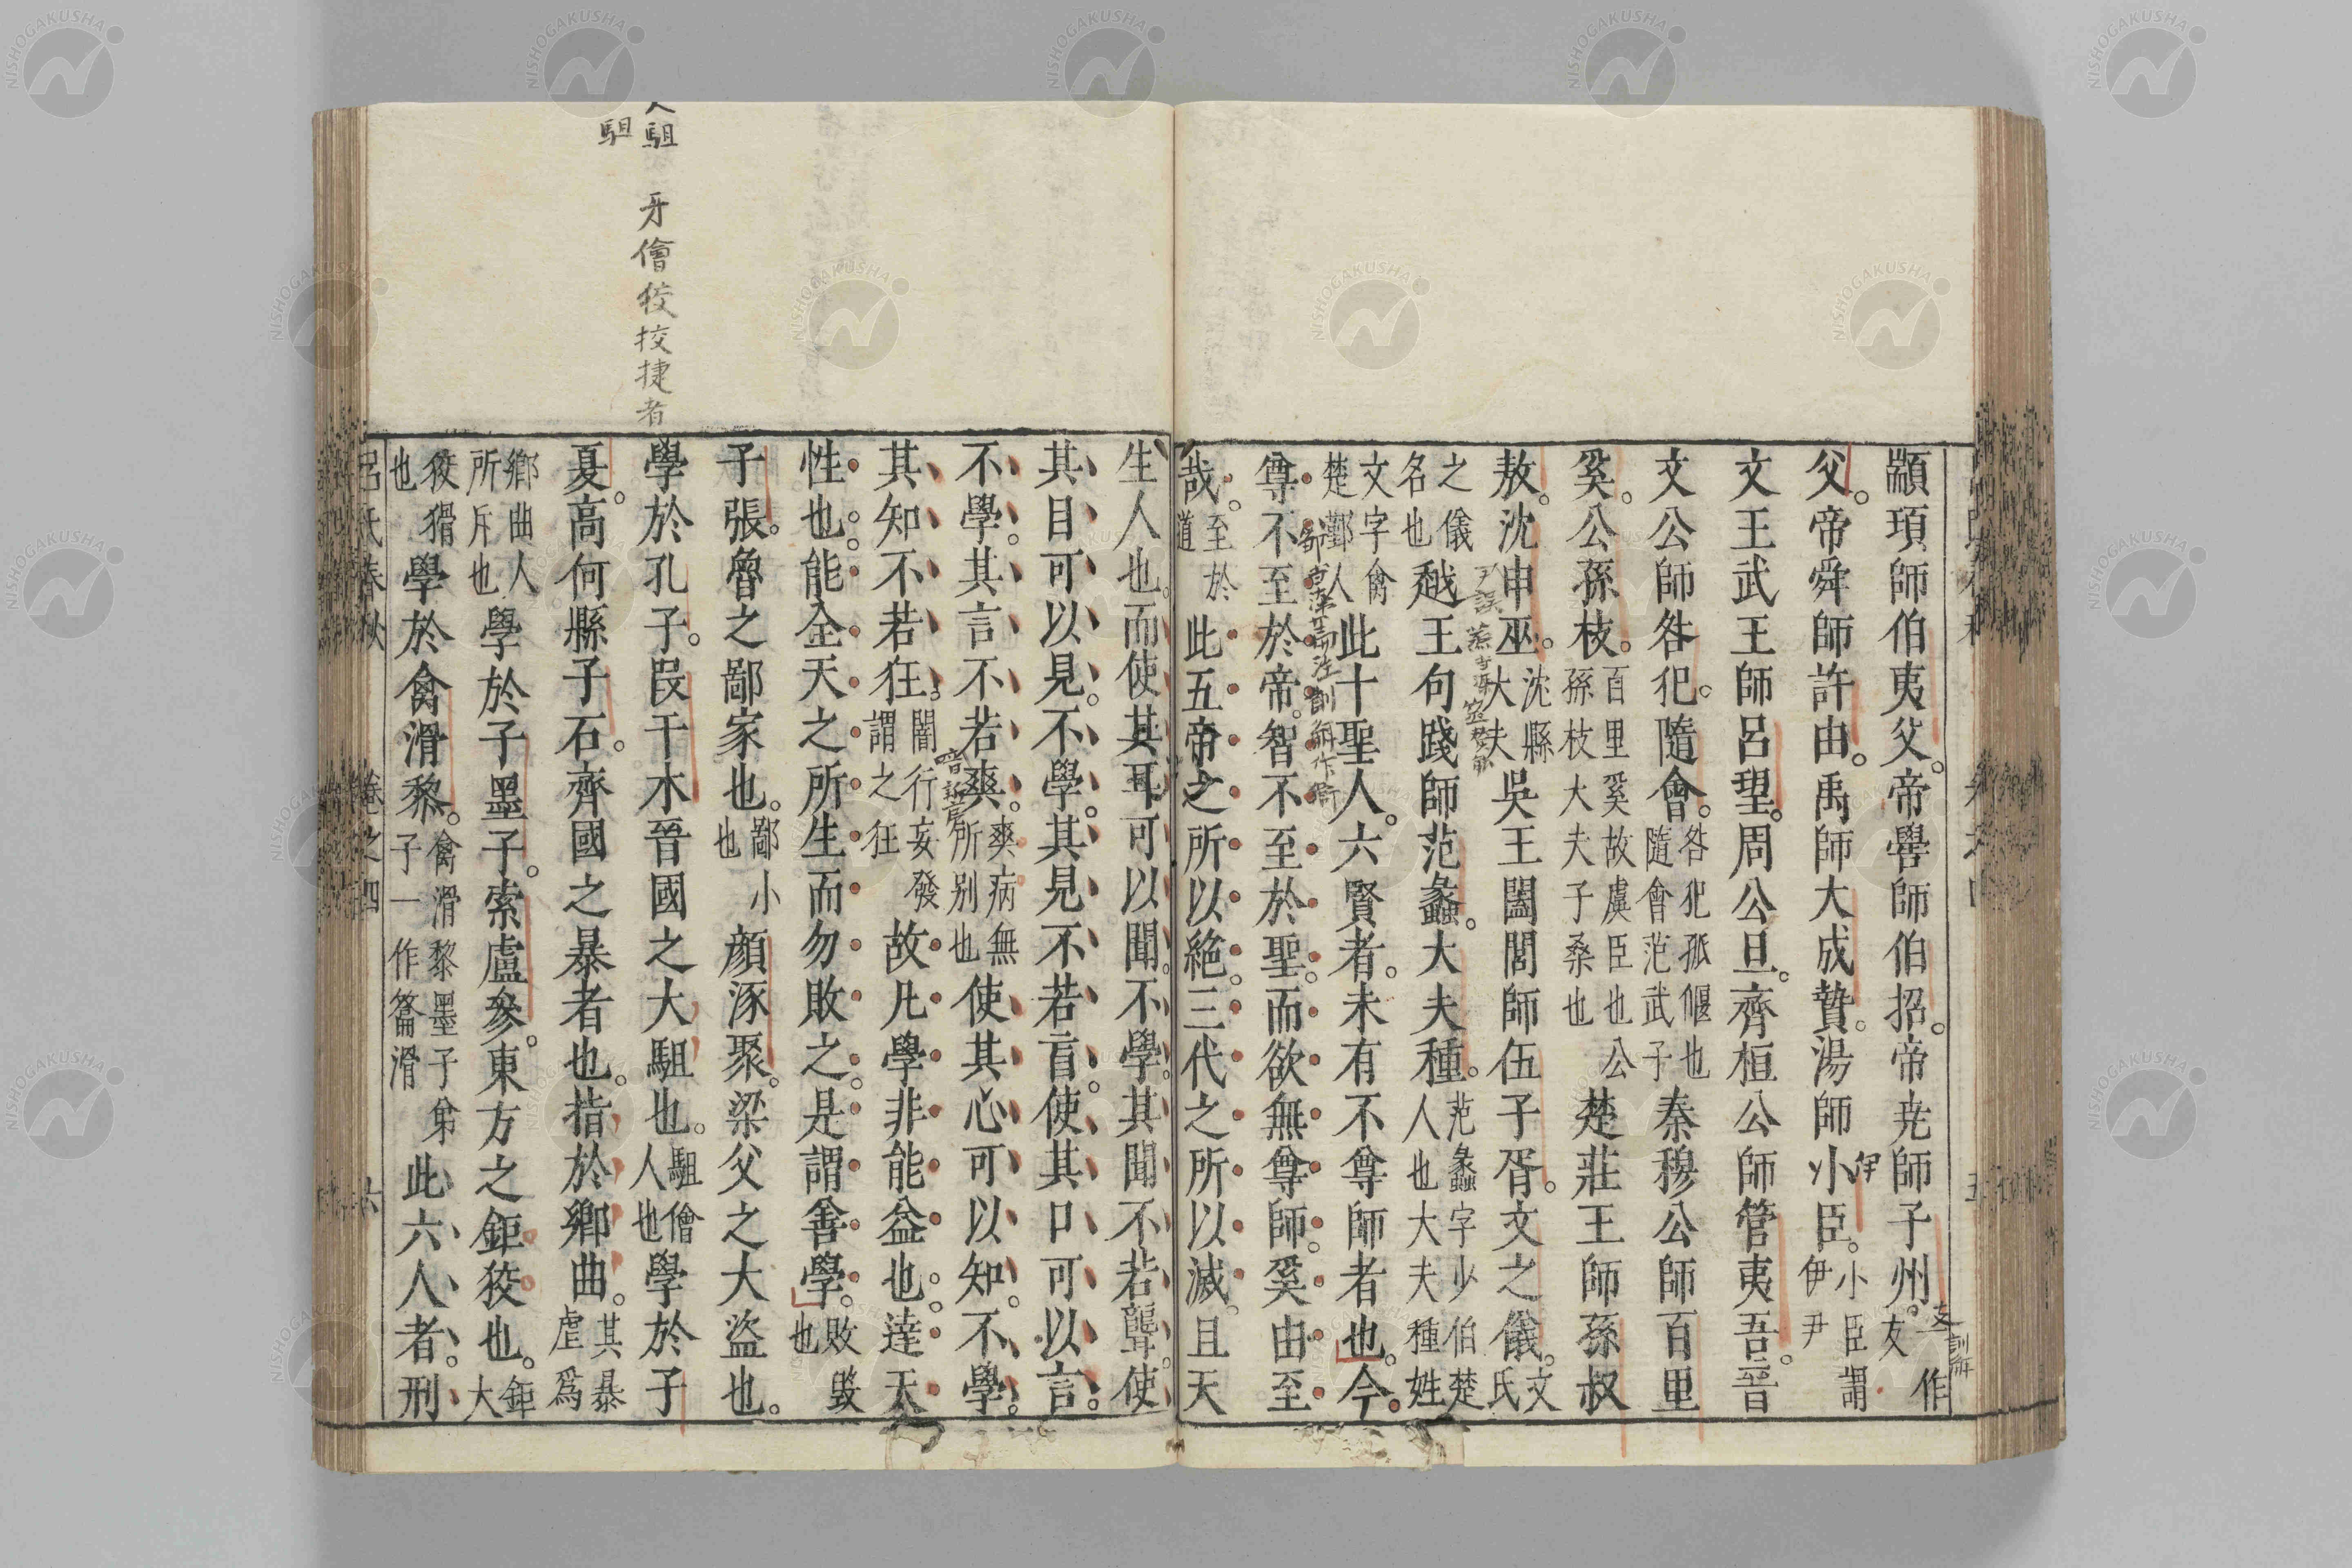 顓頊師伯夷父。帝嚳師伯招。帝尭師子州。友一作
父。帝舜師許由。禹師大成贄。湯師小臣。小臣謂伊尹
文王武王師呂望。周公旦。齊桓公師管夷吾。晉
文公師咎犯。隨會。咎犯孤偃也隨會范武子秦穆公師百里
奚。公孫枝。百里奚故虞臣也公孫枝大夫子桑也楚莊王師孫叔
敖。沈申巫。沈縣大夫吳王闔閭師伍子胥。文之儀。文氏
之儀名也越王句踐師范蠡。大夫種。范蠡字少伯楚人也大夫種姓
文字禽楚鄞人此十聖人。六賢者。未有不尊師者也。今
尊不至於帝。智不至於聖。而欲無尊師。奚由至
哉。至於道此五帝之所以絶。三代之所以滅。且天
生人也。而使其耳可以聞。不學。其聞不若聾。使
其目可以見。不學。其見不若盲。使其口可以言。
不學。其言不若爽。爽病無所别也使其心可以知。不學。
其知不若狂。闇行妄發謂之狂故凡學非能益也。達天
性也。能全天之所生而勿敗之。是謂善學。敗毀也
子張。魯之鄙家也。鄙小也顔涿聚。梁父之大盜也。
學於孔子。段干木晉國之大駔也。駔儈人也學於子
夏。高何縣子石。齊國之暴者也。指於鄉曲。其暴虐爲
鄉曲人所斥也學於子墨子。索盧參。東方之鉅狡也。鉅大
狡猾也學於禽滑黎。禽滑黎墨子弟子一作籥滑此六人者。刑
呂氏春秋 卷之四 六
駔
牙儈狡捷者
伊
訓解